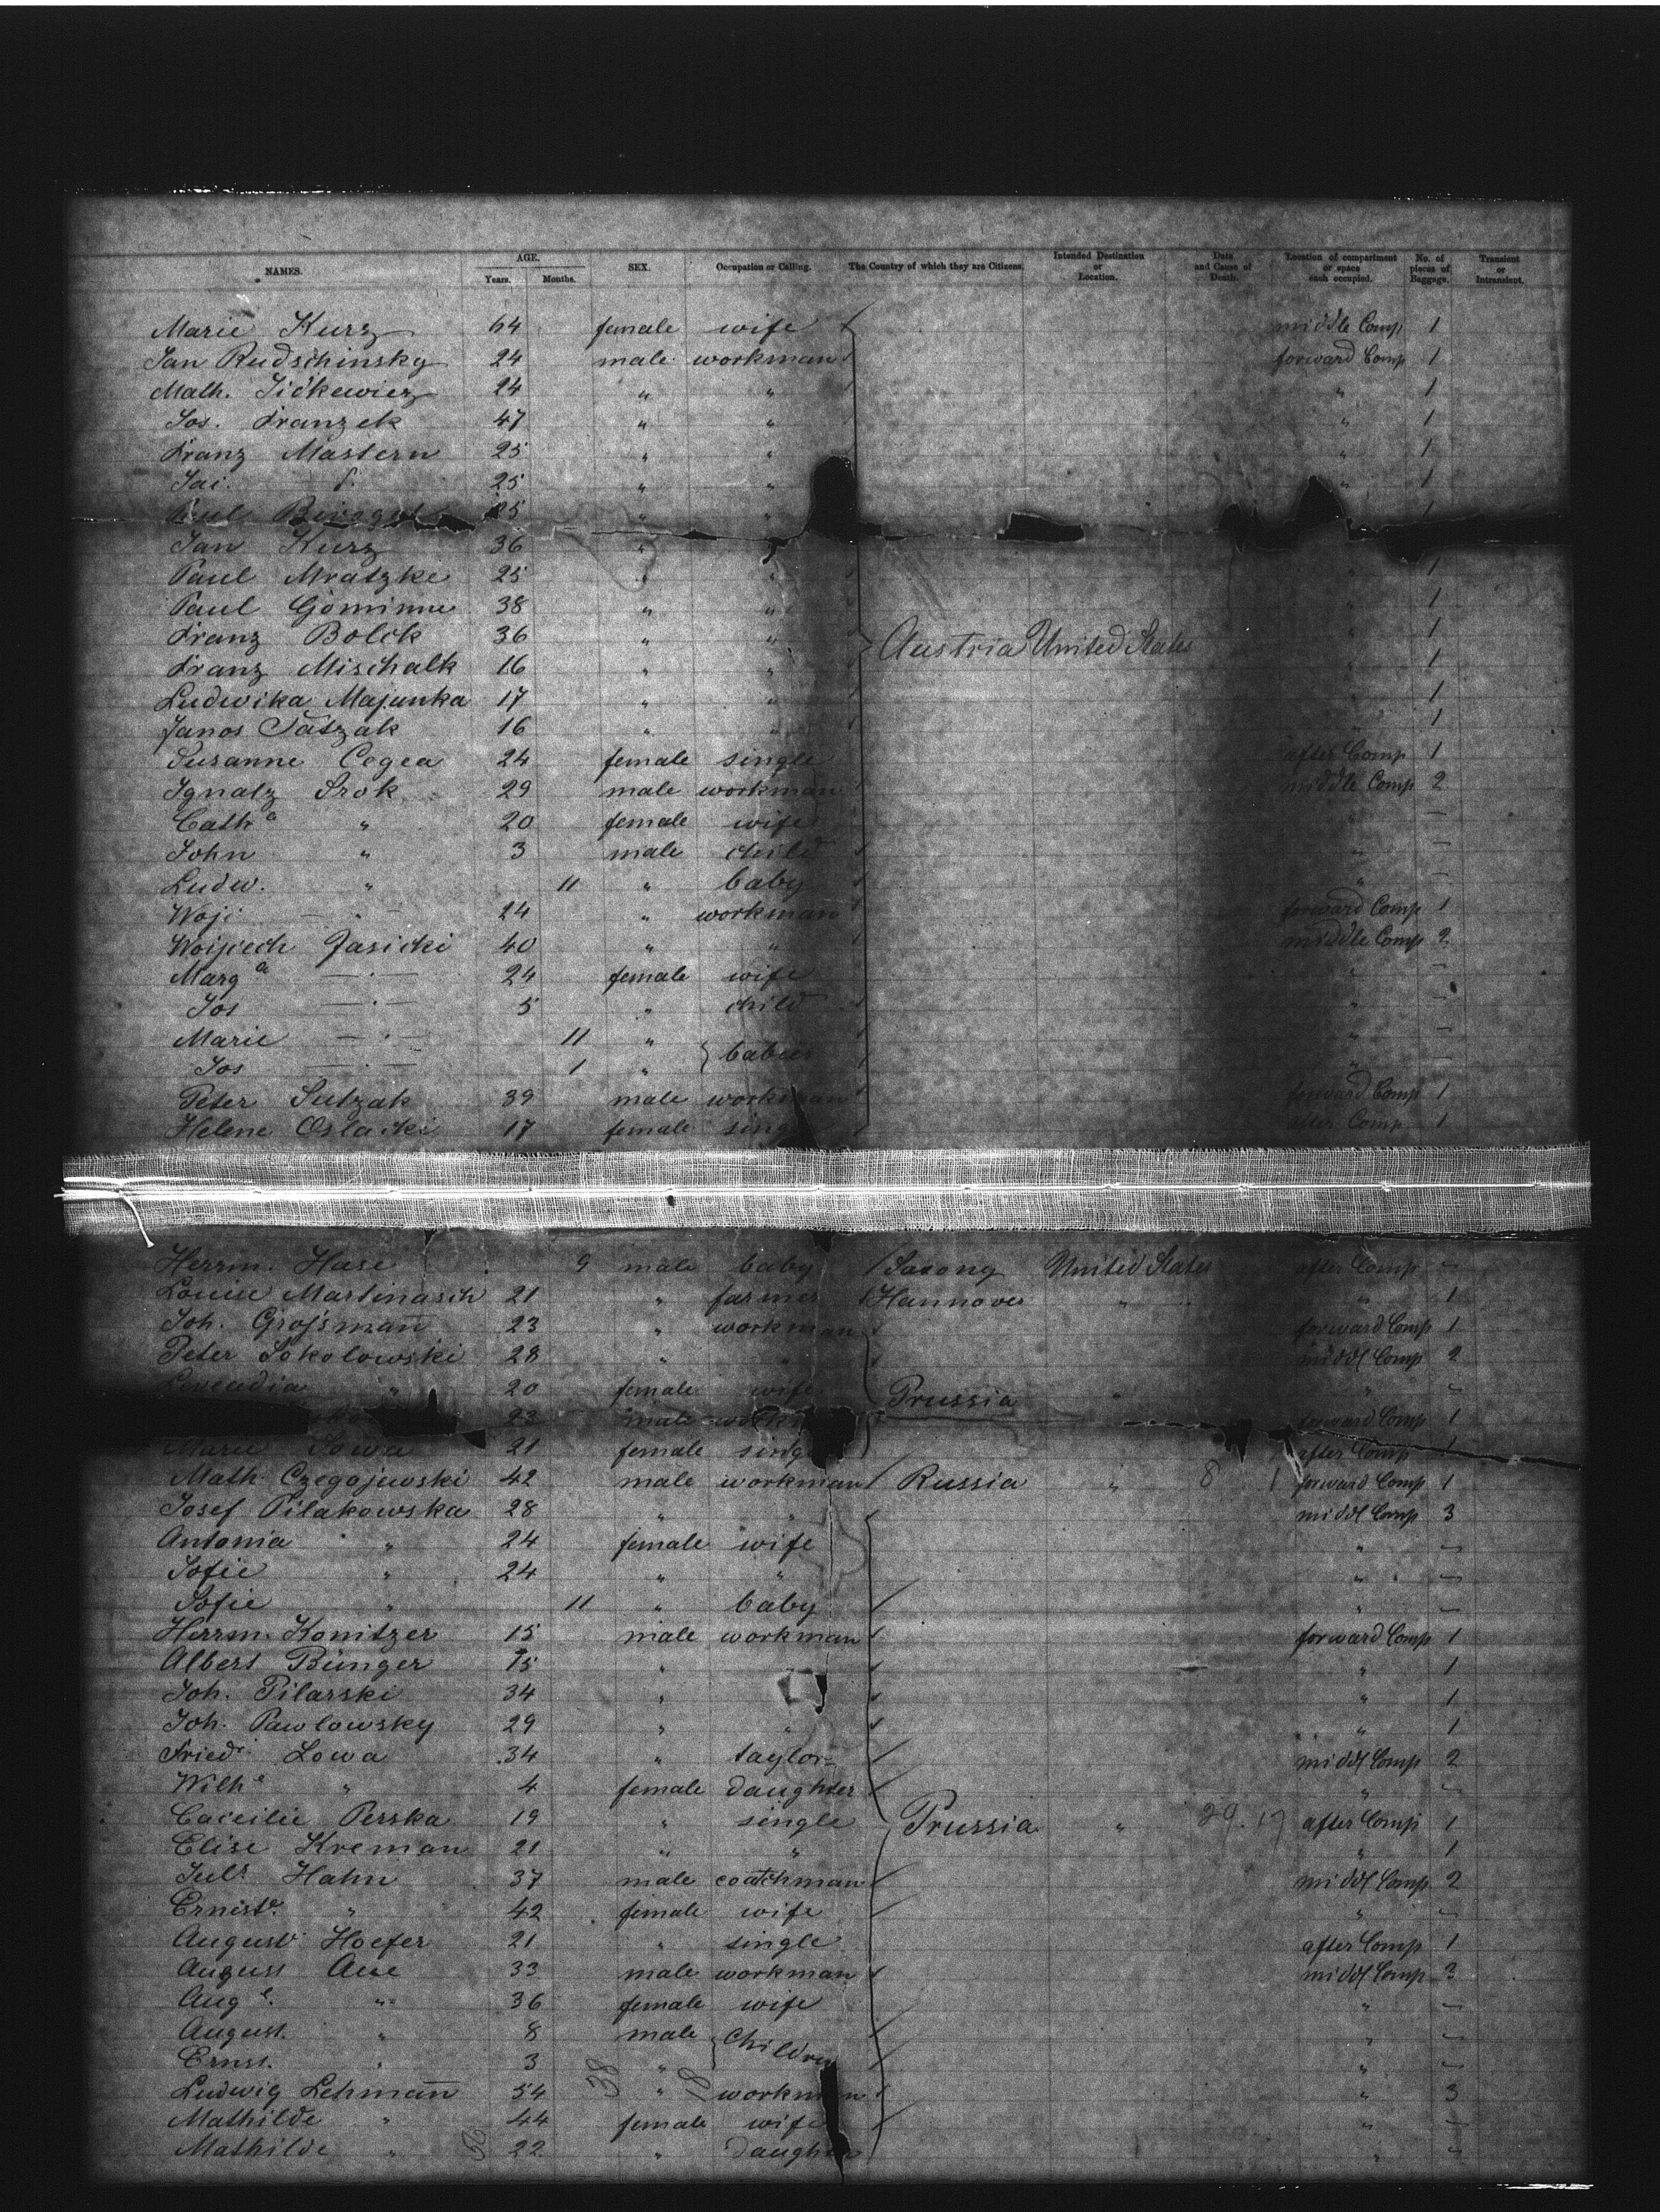 NAMES. AGE. Years. Months. SEX. Occupation or Calling. The Country of which they are Citizens. Intended Destination or Location. Date and Cause of Death. Location of compartment or space each occupied. No. of pieces of Baggage. Transient or Intransient.
Marie Kurz 64 female wife middle Comp 1
Jan Rudschinsky 24 male workman forward Comp 1
Math. 24 " " " 1
Jos. Franzek 47 " " " 1
Franz Mastern 25 " " " 1
25 " " " 1
Paul 25 " "
Jan Kurz 36 " "
Paul Mratzke 25 " " " 1
Paul 38 " " " 1
Franz Bolck 36 " " Austria United States " 1
Franz Mischalk 16 " " " 1
Ludwika Majunka 17 " " " 1
Janos Tatzak 16 " " " 1
Susanne Cegea 24 female single after Comp 1
Ignatz Srok 29 male workman middle Comp 2
Cath a " 20 female wife " —
John " 3 male child " —
Ludw. " 11 " baby " —
Woj. — " — 24 " workman forward Comp 1
Woijciech Jasicki 40 " " middle Comp 2
Marg a — " — 24 female wife " —
Jos — " — 5 " child " —
Marie — " — 11 " babies " —
Jos — " — 1 " " —
Peter Sutzak 39 male workman forward Comp 1
Helene Oslacki 17 female sing after Comp 1
Herrm. Hase 9 male baby Saxony United States after Comp —
Louise Martinasch 21 " farmer Hannover " " 1
Joh. Grossman 23 " workman forward Comp 1
Peter Sokolowski 28 " " middl Comp 2
Leocadia " 20 female wife Prussia " " —
23 male work forward Comp 1
Marie Sowa 21 female sing after Comp 1
Math. Czegojewski 42 male workman Russia " 8 1 forward Comp 1
Josef Pilakowska 28 " " middl Comp 3
Antonia " 24 female wife " —
Sofie " 24 " " " —
Sofie " 11 " baby " —
Herrm. Konitzer 15 male workman forward Comp 1
Albert Bünger 15 " " 1
Joh. Pilarski 34 " " 1
Joh. Pawlowsky 29 " " " 1
Friedr. Lowa 34 " taylor middl Comp 2
Wilh e " 4 female daughter " —
Caecilie Perska 19 " single Prussia " 29. 17 after Comp 1
Elise Kreman 21 " " " 1
Juls Hahn 37 male coatchman middl Comp 2
Ernste. " 42 female wife " —
August Hoefer 21 " single after Comp 1
August Aue 33 male workman middl Comp 3
Aug e. " 36 female wife " —
August. " 8 male children " —
Ernst. " 3 " " —
Ludwig Lehmann 54 38 " 8 workman " 3
Mathilde " 44 female wife " —
Mathilde " 22 " daughter " —